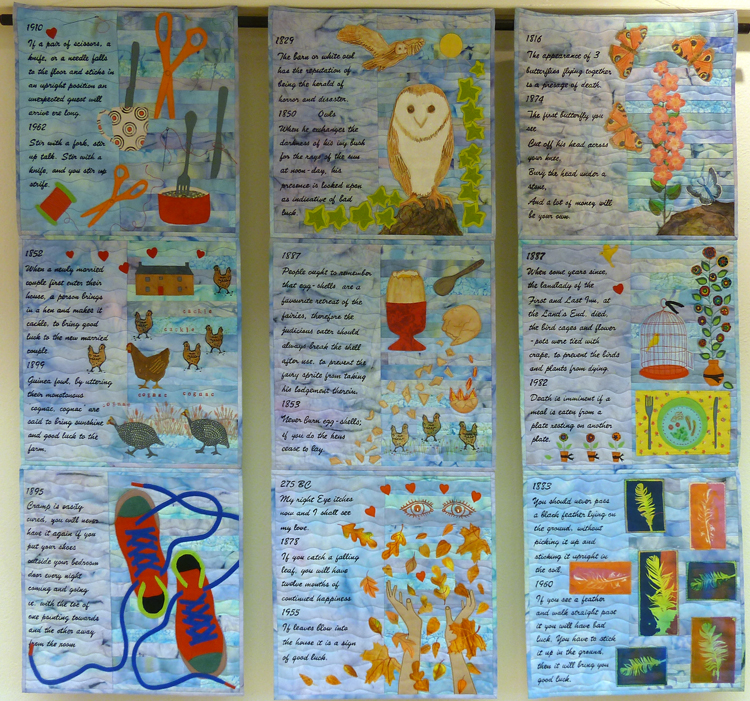 1910
If a pair of scissors, a
knife, or a needle falls
to the floor and sticks in
an upright position an
unexpected guest will
arrive ere long.
1962
Stir with a fork, stir
up talk. Stir with a
knife, and you stir up
strife.
1852
When a newly married
couple first enter their
house, a person brings
in a hen and makes it
cackle, to bring good
luck to the new married
couple
1899
Guinea fowl, by uttering
their monotonous
cognac, cognac are
said to bring sunshine
and good luck to the
farm.
cackle
cackle
cognac cognac
1895
Cramp is easily
cured, you will never
have it again if you
put your shoes
outside your bedroom
door every night
coming and going
ie. with the toe of
one pointing towards
and the other away
from the room
1829
The barn or white owl
has the reputation of
being the herald of
horror and disaster.
1850 Owls
When he exchanges the
darkness of his ivy bush
for the rays of the sun
at noon-day, his
presence is looked upon
as indicative of bad
luck.
1887
People ought to remember
that egg-shells are a
favourite retreat of the
fairies, therefore the
judicious eater should
always break the shell
after use, to prevent the
fairy sprite from taking
his lodgement therein.
1853
Never burn egg-shells;
if you do the hens
cease to lay.
275 BC
My right Eye itches
now and I shall see
my love.
1878
If you catch a falling
leaf, you will have
twelve months of
continued happiness
1955
If leaves blow into
the house it is a sign
of good luck.
1816
The appearance of 3
butterflies flying together
is a presage of death.
1874
The first butterfly you
see
Cut off his head across
your knee,
Bury the head under a
stone,
And a lot of money will
be your own.
1887
When some years since,
the landlady of the
First and Last Inn, at
the Land's End, died,
the bird cages and flower
-pots were tied with
crape, to prevent the birds
and plants from dying.
1982
Death is imminent if a
meal is eaten from a
plate resting on another
plate.
1883
You should never pass
a black feather lying on
the ground, without
picking it up and
sticking it upright in
the soil.
1960
If you see a feather
and walk straight past
it you will have bad
luck. You have to stick
it up in the ground,
then it will bring you
good luck.